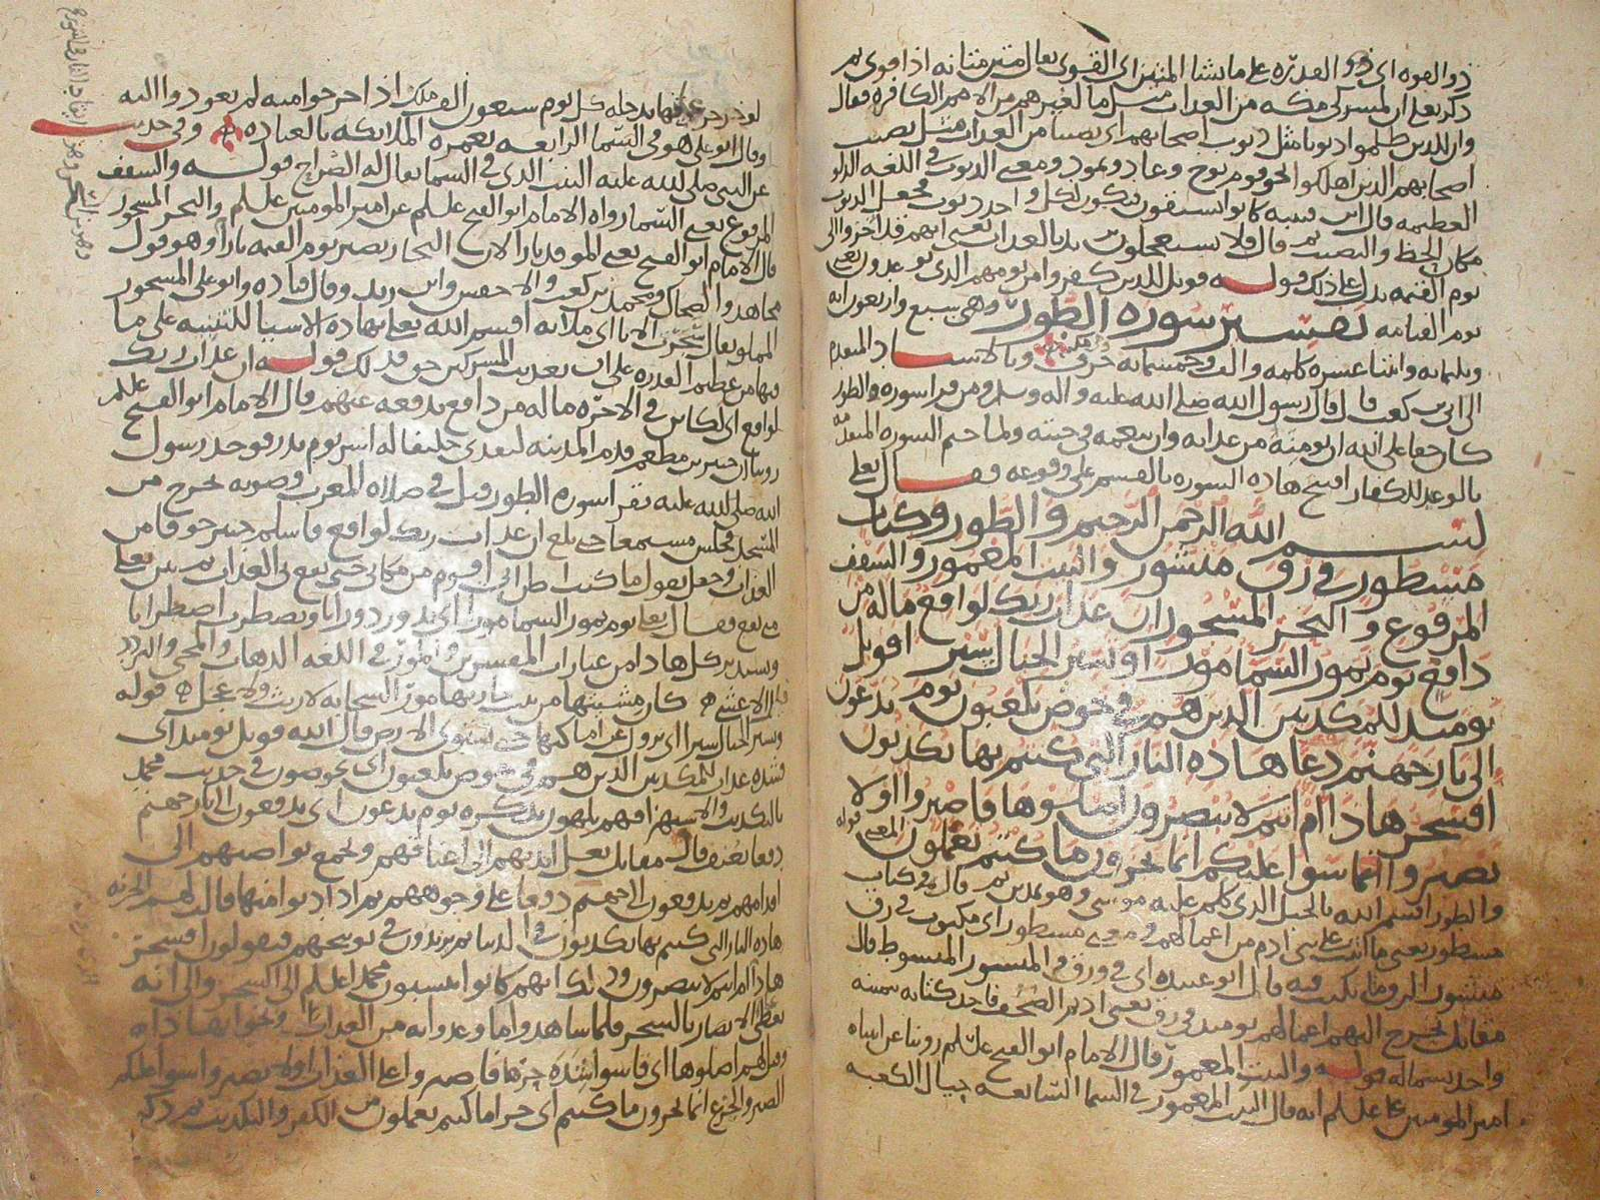 ذو القوه اى ذو القدره على ما يشا المتين اى القوى يقال متن متانه اذا قوى ثم
ذكر تعلى ان لمشركى مكه من العذاب مثل ما لغيرهم من الامم الكافره فقال
وان للذين ظلموا ذنوبا مثل ذنوب اصحابهم اى نصيبا من العذاب مثل نصيب
اصحابهم الذين اهلكوا نحو قوم نوح وعاد وثمود ومعنى الذنوب فى اللغه الدلو
العظيمه قال ابن قتيبه كانوا يستقون فيكون لكل واحد ذنوب فجعل الذنوب
مكان الحظ والنصيب ثم قال فلا يستعجلون بالعذاب يعنى انهم قد اخروا الى
يوم القيمه يدل على ذلك قوله فويل للذين كفروا من يومهم الذى يوعدون يعنى
يوم القيامه تفسير سوره الطور وهى سبع واربعون ايه
وثلثمايه واثنتا عشره كلمه والف وخمسمايه حرف وبالاسناد المتقدم
الى ابى بن كعب قال قال رسول الله صلى الله عليه واله وسلم ومن قرا سوره والطور
كان حقا على الله ان يومنه من عذابه وان ينعمه فى جنته ولما ختم السوره المتقدمه
بالوعيد للكفار افتتح هاذه السوره بالقسم على وقوعه فقال تعلى
بسم الله الرحمن الرحيم والطور وكتاب
مسطور فى رق منشور والبيت المعمور والسقف
المرفوع والبحر المسجور ان عذاب ربك لواقع ماله من
دافع يوم تمور السما مورا وتسير الجبال سيرا فويل
يوميذ للمكذبين الذين هم فى خوض يلعبون يوم يدعون
الى نار جهنم دعا هاذه النار التى كنتم بها تكذبون
افسحر هاذا ام انتم لا تبصرون اصلوها فاصبروا اولا
تصبروا سوا عليكم انما تجزون ما كنتم تعملون المعنى قوله
والطور اقسم الله بالجبل الذى كلم عليه موسى وهو بمدين ثم قال وكتاب
مسطور يعنى ما اثبت على بنى ادم من اعمالهم ومعنى مسطور اى مكتوب فى رق
منشور الرق ما يكتب فيه قال ابو عبيده اى فى ورق والمنشور المبسوط قال
مقاتل تخرج اليهم اعمالهم يوميذ فى رق يعنى اديم الصحف فاخذ كتابه بيمينه
واخذ بشماله قوله والبيت المعمور قال الامام ابو الفتح عليلم روينا عن اباه
امير المومنين على عليلم انه قال البيت المعمور فى السما السابعه حيال الكعبه
وقال ابو على هو فى السما الرابعه يعمره الملايكه بالعباده وفى حديث
عن النبى صلى الله عليه البيت الذى فى السما يقال له الضراح قوله والسقف
المرفوع يعنى السما رواه الامام ابو الفتح عليلم عن امير المومنين عليلم والبحر المسجور
قال الامام ابو الفتح يعنى الموقد نارا لان البحار تصير يوم القيمه نارا وهو قول
مجاهد والضحاك ومحمد بن كعب والاخفش وابن زيد وقال قتاده وابو على المسجور
المملو يقال سجرت الانا اى ملاته اقسم الله تعلى بهاذه الاشيا للتنبيه على ما
فيها من عظيم القدره على ان تعذيب المشركين حق فذلك قوله ان عذاب ربك
لواقع اى لكاين فى الاخره ماله من دافع يدفعه عنهم قال الامام ابو الفتح عليلم
روينا ان جبير بن مطعم قدم المدينه ليفدى حليفا له اسر يوم بدر فوجد رسول
الله صلى الله عليه يقرا سوره الطور قيل فى صلاه المغرب وصوته يخرج من
المسجد فجلس مستمعا حتى بلغ ان عذاب ربك لواقع فاسلم جبير خوفا من
العذاب وجعل يقول ما كنت اظن انى اقوم من مكانى حتى يقع بى العذاب ثم بين تعلى
متى يقع فقال تعلى يوم تمور السما مورا اى تدور دورانا وتضطرب اضطرابا
وتستدير كل هاذا من عبارات المفسرين والمور فى اللغه الذهاب والمجى والتردد
قال الاعشى كان مشيتها من بيت جارتها مور السحابه لا ريث ولا عجل قوله
وتسير الجبال سيرا اى تزول عن اماكنها حتى تستوى الارض قال الله فويل يوميذ اى
فشده عذاب للمكذبين الذين هم فى خوض يلعبون اى يخوضون فى حديث محمد
بالتكذيب والاستهزا فهم يلهون بذكره يوم يدعون اى يدفعون الى نار جهنم
دفعا بعنف قال مقاتل تغل ايديهم الى اعناقهم وتجمع نواصيهم الى
اقدامهم ثم يدفعون الى جهنم دفعا على وجوههم ثم اذا دنوا منها قال لهم الخزنه
هاذه النار التى كنتم بها تكذبون فى الدنيا ثم يزيدون فى توبيخهم فيقولون افسحر
هاذا ام انتم لا تبصرون وذلك انهم كانوا ينسبون محمدا عليلم الى السحر والى انه
يغطى الابصار بالسحر فلما شاهدوا ما وعدوا به من العذاب
وقيل لهم اصلوها اى قاسوا شده حرها فاصبروا على العذاب اولا تصبروا سوا عليكم
الصبر والجزع انما تجزون ما كنتم اى جزا ما كنتم تعملون من الكفر والتكذيب ثم ذكر